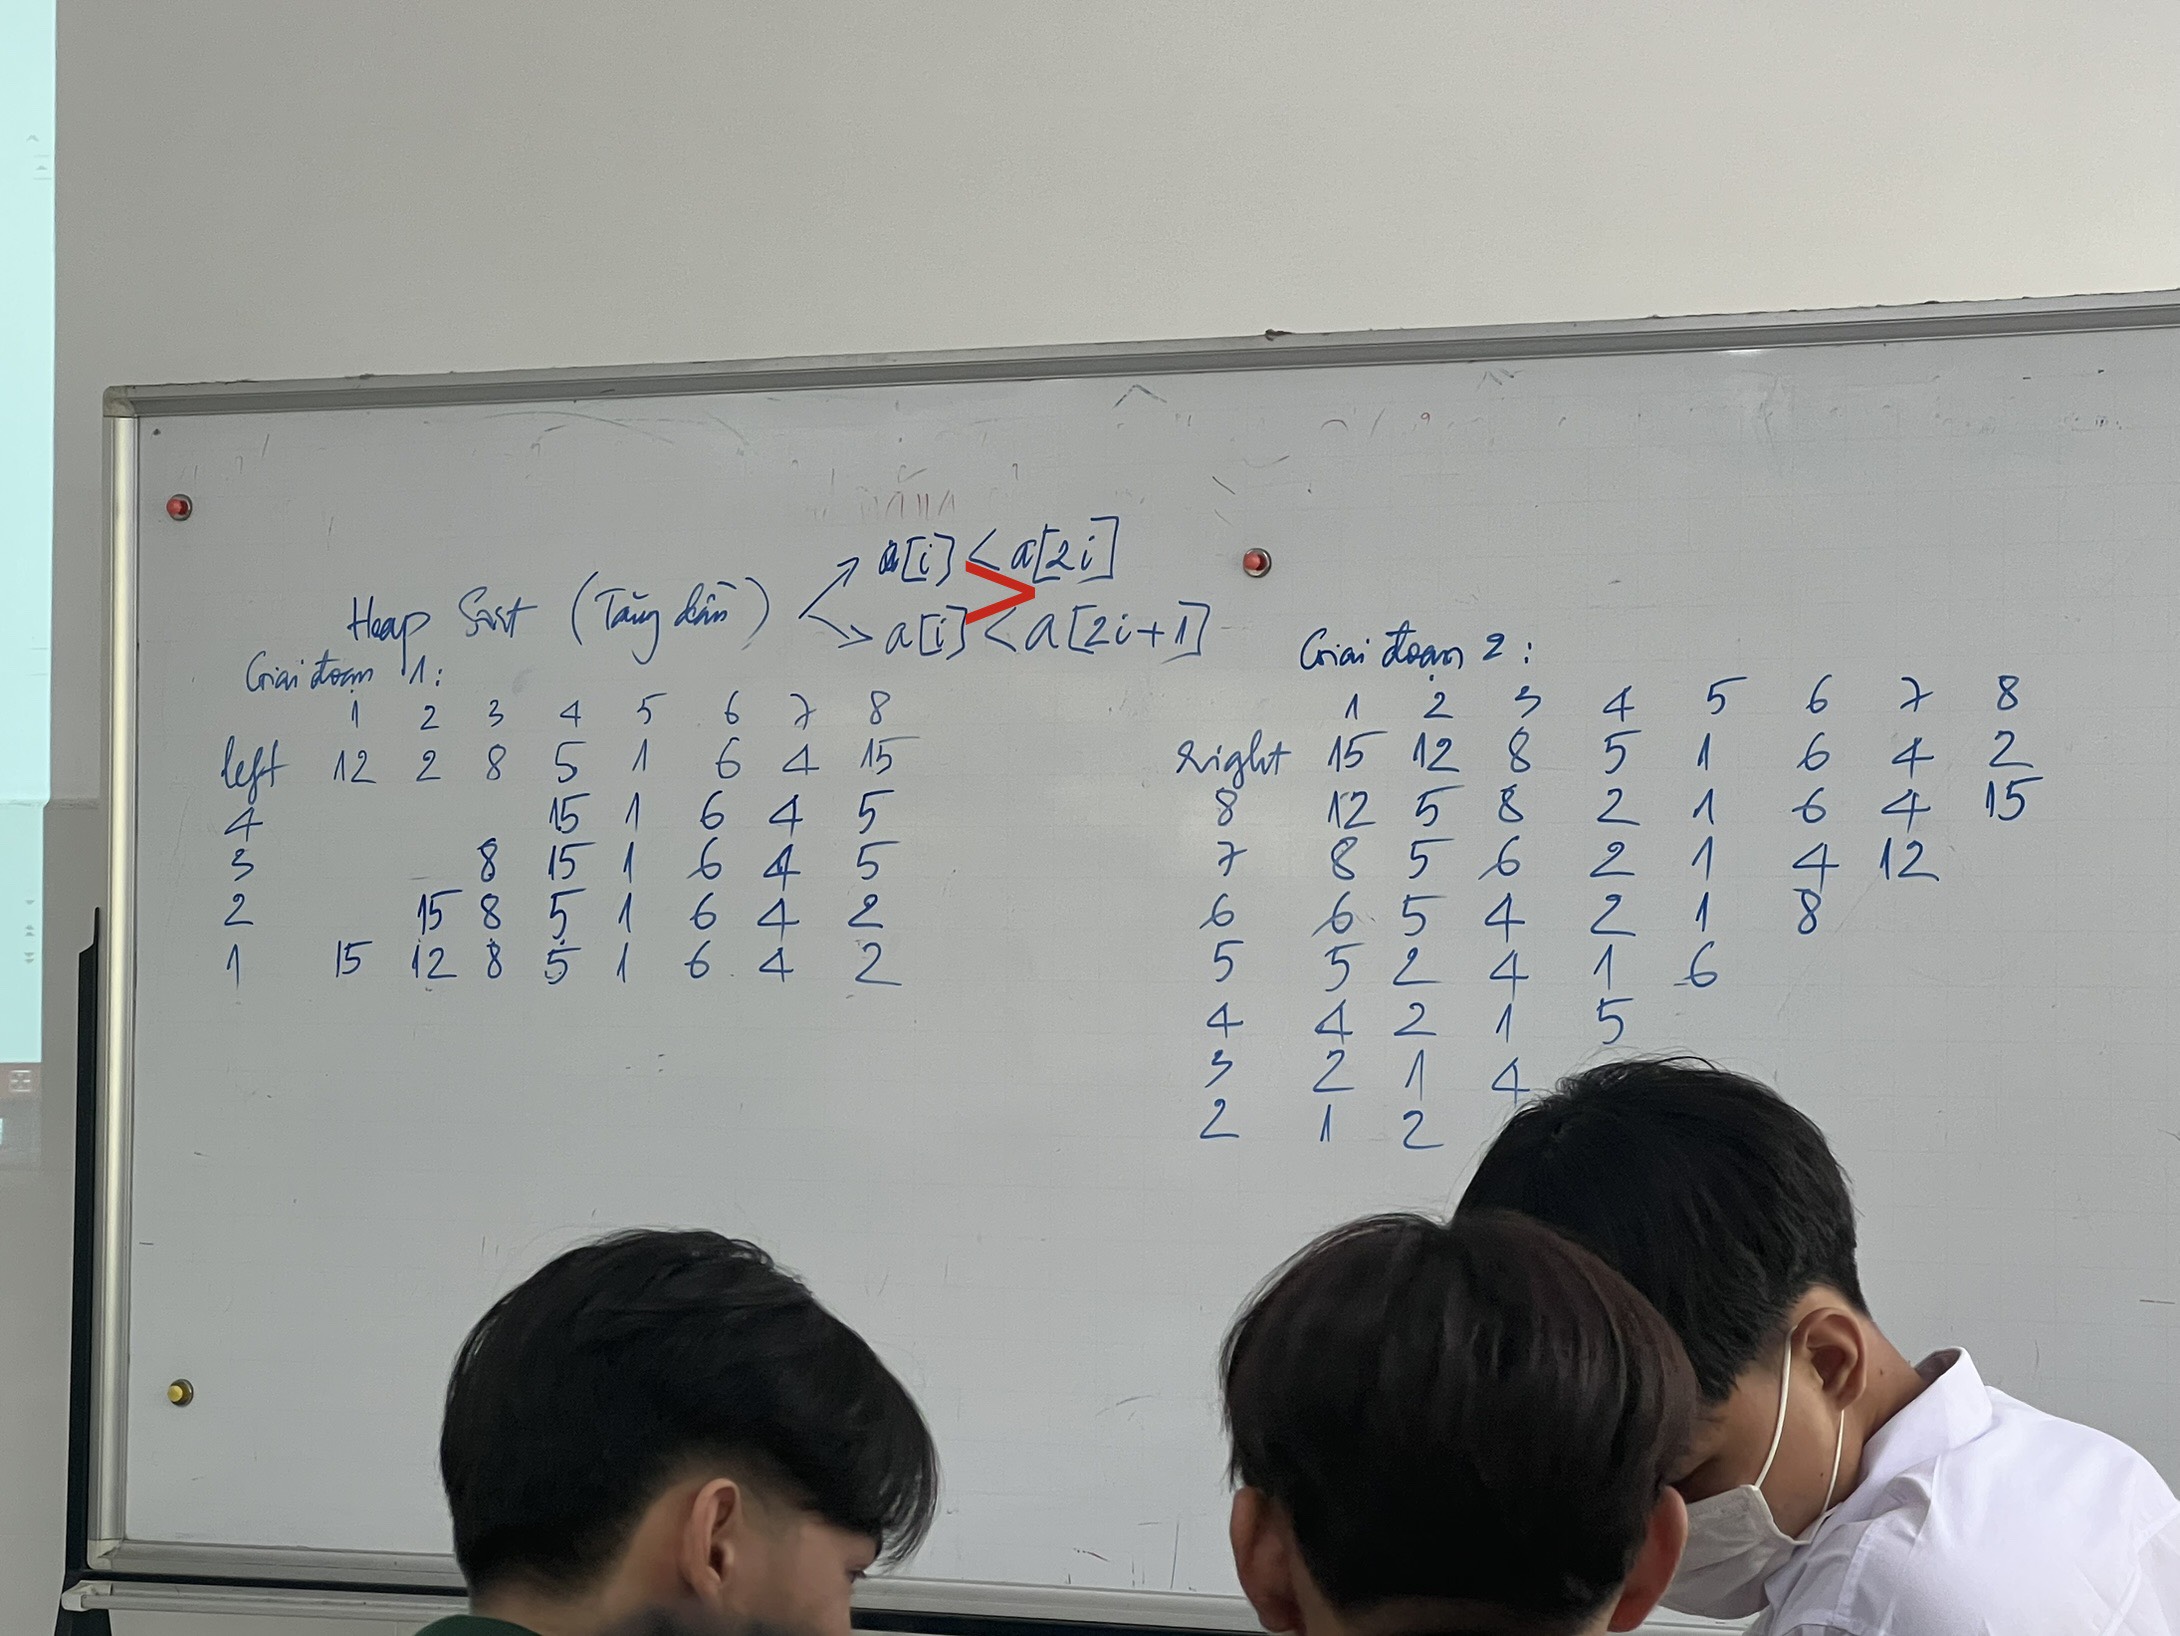 Heap Sort (Tăng dần)
a[i] < a[2i]
>
a[i] < a[2i+1]
Giai đoạn 1:
1 2 3 4 5 6 7 8
left 12 2 8 5 1 6 4 15
4 15 1 6 4 5
3 8 15 1 6 4 5
2 15 8 5 1 6 4 2
1 15 12 8 5 1 6 4 2
Giai đoạn 2:
1 2 3 4 5 6 7 8
right 15 12 8 5 1 6 4 2
8 12 5 8 2 1 6 4 15
7 8 5 6 2 1 4 12
6 6 5 4 2 1 8
5 5 2 4 1 6
4 4 2 1 5
3 2 1 4
2 1 2